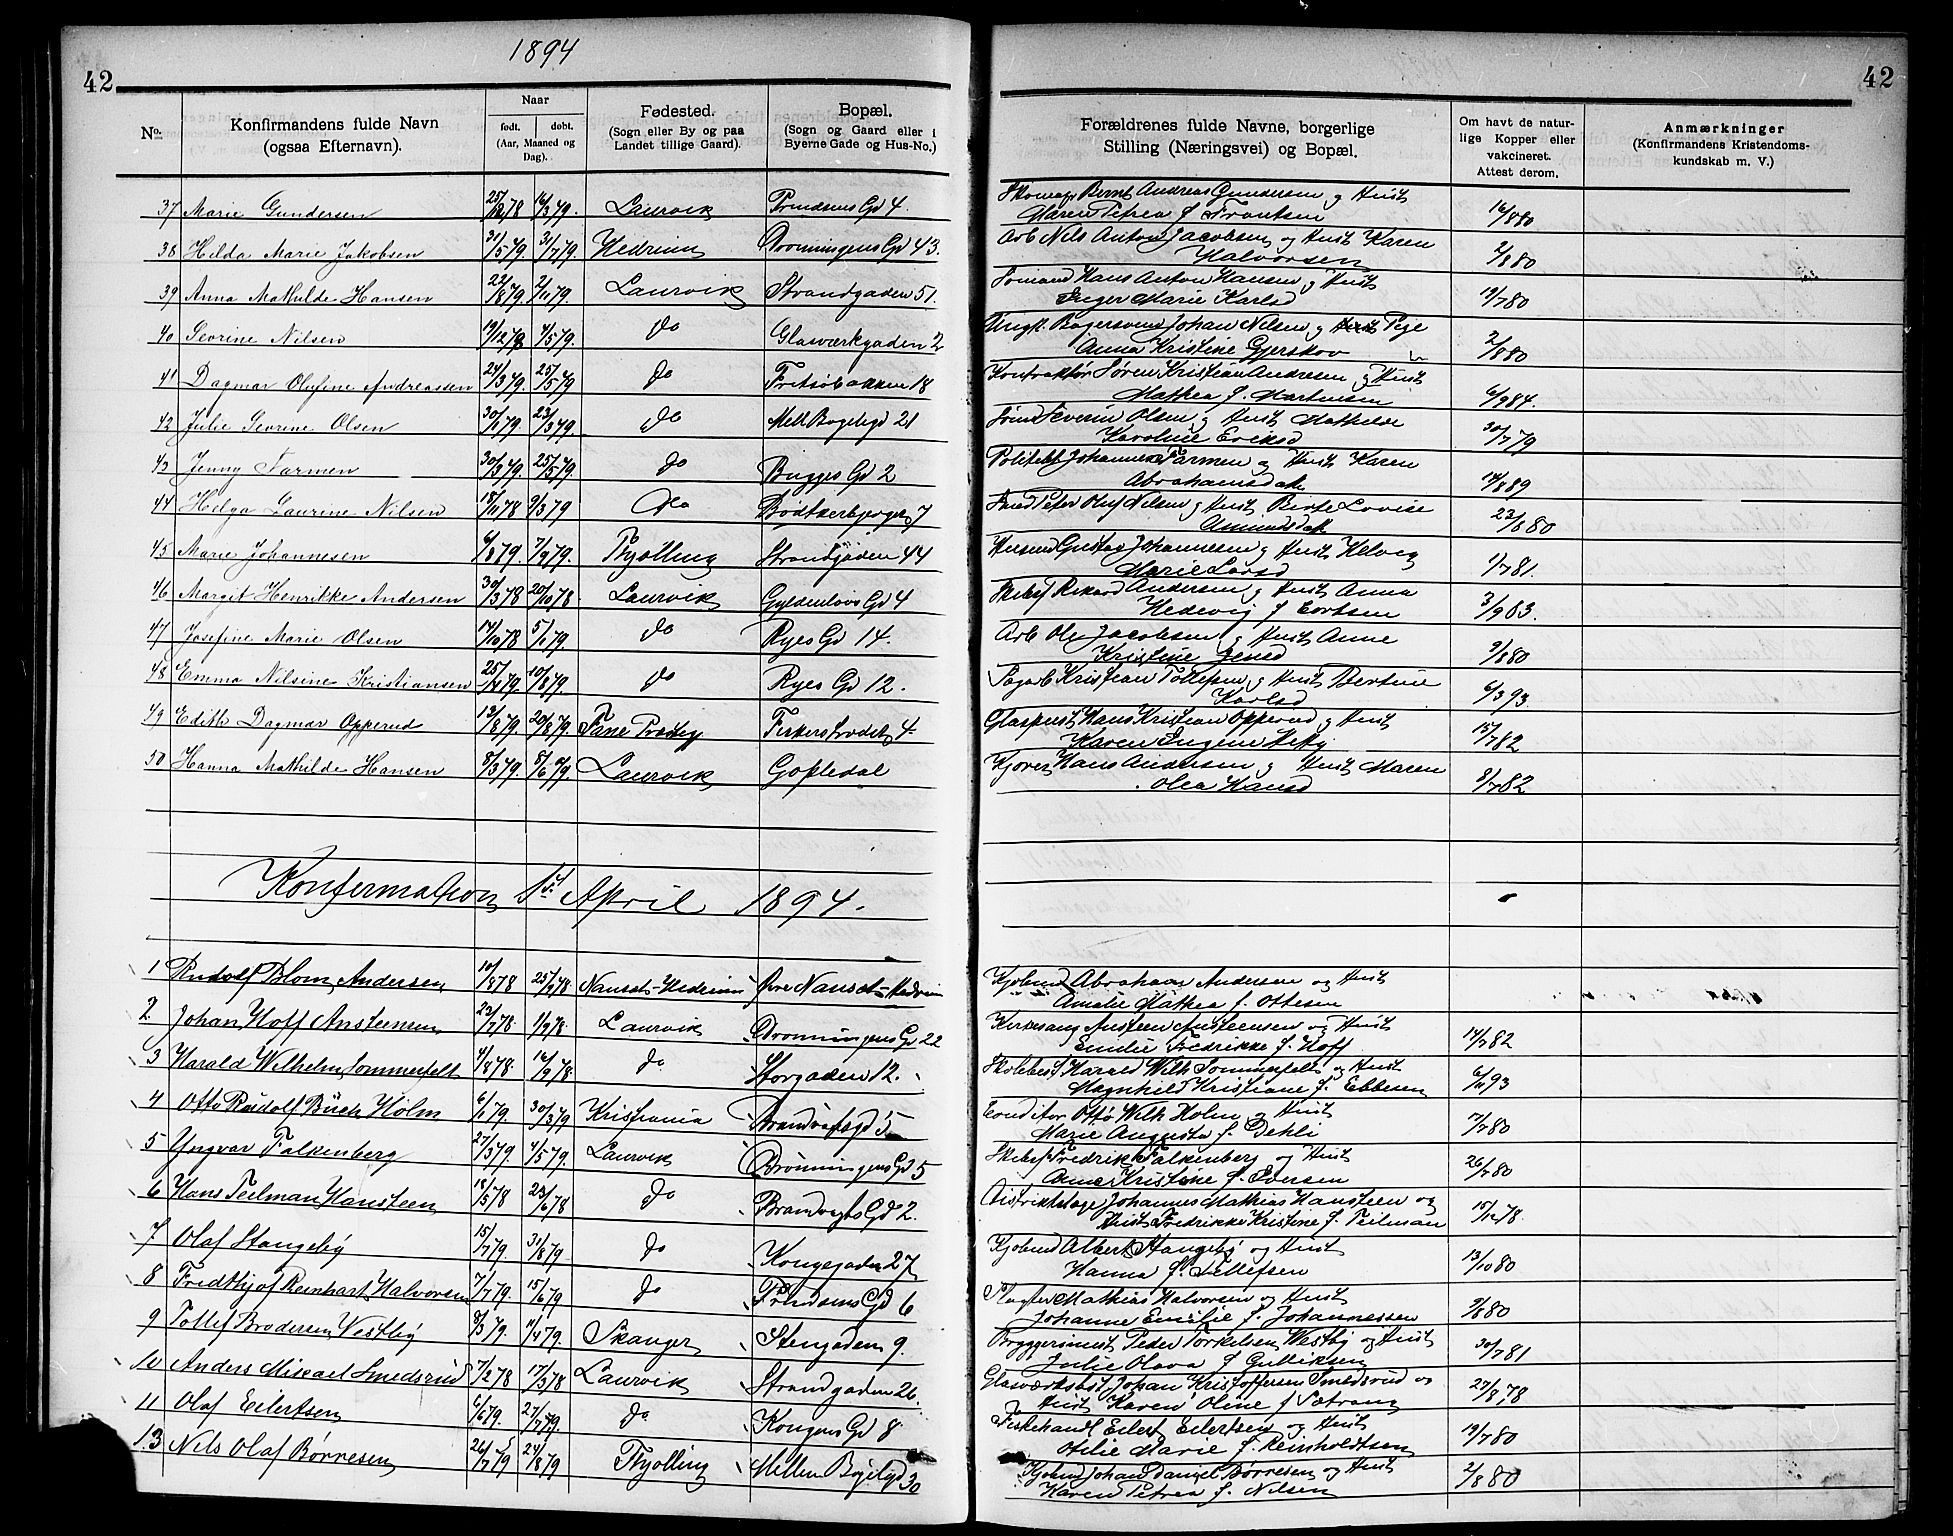 1894
42
No.
Konfirmandens fulde Navn
(ogsaa Efternavn).
Naar
født. døbt.
(Aar, Maaned og
Dag).
Fødested.
(Sogn eller By og paa
Landet tillige Gaard).
Bopæl.
(Sogn og Gaard eller i
Byerne Gade og Hus-No.)
37 Marie Gundersen 25/12 78 16/3 79. Laurvik Gd 4.
38 Hilda Marie Jakobsen 31/5 79. 31/7 79. Hedrum Dronningens Gd 43.
39 Anna Mathilde Hansen 22/8 79. 2/11 79. Laurvik Strandgaden 51.
40 Sevrine Nilsen 19/12 78 4/5 79. do Glasværkgaden 2
41 Dagmar Olufine Andreassen 24/3 79. 25/5 79 do Fritsøbakken 18
42 Julie Sevrine Olsen 30/1 79. 23/3 79. do Mell Bøgeligd 21
43 Jenny Farmen 30/3 79. 25/5 79 do Bugges Gd 2
44 Helga Laurine Nilsen 18/11 78 9/3 79 do Bødtkerbjerget 7
45 Marie Johannesen 6/8 79. 7/9 79. Thjølling Strandgaden 44
46 Margit Henrikke Andersen 30/3 78 20/10 78 Laurvik Gyldenløvs Gd 4
47 Josefine Marie Olsen 17/10 78 5/1 79. do Ryes Gd 14.
48 Emma Nilsine Kristiansen 25/4 79. 10/8 79. do Ryes Gd 12.
49 Edith Dagmar Opperud 13/8 79. 20/8 79. Fane Prstg Torkerstrødet 4.
50 Hanna Mathilde Hansen 8/3 79. 8/6 79 Laurvik Gopledal
Konfermation 1st April 1894.
1 Rudolf Blom Andersen 10/8 78 25/9 78 Nanset-Hedrum Øvre Nanset-Hedrum
2 Johan Hoff Ansteensen 22/7 78. 1/9 78. Laurvik Dronningens Gd 22
3 Harald Wilhelm Sommerfelt 4/8 78. 16/9 78. do Storgaden 12.
4 Otto Rudolf Buch Holm 6/1 79. 30/3 79 Kristiania Brandvagtsgd 5
5 Yngvar Falkenberg 27/3 79. 4/5 79. Laurvik Dronningens Gd 5
6 Hans Teilman Hansteen 18/5 78 23/6 78 do Brandvagts Gd 2.
7 Olaf Stangeby 15/7 79. 31/8 79. do Kongegaden 27
8 Fredthjof Reinhart Halvorsen 7/1 79. 15/6 79 do Gd 6
9 Tollef Brodersen Westby 8/3 79. 11/4 79. Skanger Stengaden 9.
10 Anders Mikael Smedsrud 7/2 78 17/3 78 Laurvik Strandgaden 26.
11 Olaf Eilertsen 6/6 79. 27/7 79. do Kongens Gd 8
13 Nils Olaf Børresen 26/7 79 24/8 79 Thjølling Mellem Bøgeligd 30
42
Forældrenes fulde Navne, borgerlige
Stilling (Næringsvei) og Bopæl.
Om havt de natur-
lige Kopper eller
vakcineret.
Attest derom.
Anmærkninger
(Konfirmandens Kristendoms-
kundskab m. V.)
Skomagr Bernt Andreas Gundersen og Hust
Maren Petrea f. Frantsen 16/8 80
Arb Nils Anton Jacobsen og Hust Karen
Halvorsen 2/8 80
Sømand Hans Anton Hansen og Hust
Inger Marie Karlsd 19/7 80
Ungk. Bagersvend Johan Nilsen og Pige
Anna Kristine Gjerskov 2/8 80
Kontraktør Søren Kristian Andresen og Hust
Mathea f. Martinsen 6/9 84.
Sømd Severin Olsen og Hust Mathilde
Karoline Eriksd 30/7 79
Politibt Johannes Farmen og Hust Karen
Abrahamsdat. 14/8 89
Peter Oluf Nilsen og Hust Birte Lovise
Amundsdat 23/8 80
Husmd Gustav Johannesen og Hust Helvig
Marie Larsd 1/7 81.
Skibsf Rikard Andersen og Hust Anna
Hedevig f. Evertsen 3/9 83.
Arb Ole Jacobsen og Hust Anne
Kristine Jensd 9/8 80
Kristian Tollefsen og Hust Bertine
Karlsd 6/3 93.
Glaspust Hans Kristian Opperud og Hust
Karen Eugenie Heby 15/7 82
Kjører Hans Andersen og Hust Maren
Olea Hansd 8/7 82
Kjøbmd Abraham Andersen og Hust
Amalie Mathea f. Ottesen
Kirkesang Ansteen Ansteensen og Hust
Emilie Fredrikke f. Hoff 14/7 82
Skolebest Harald Wilh Sommerfelt og Hust
Magnhild Kristiane f. Ebbesen 6/11 93
Conditor Otto Wilh Holm og Hust
Marie Augusta f. Dehli 7/7 80
Skibsf Fredrik Falkenberg og Hust
Anne Kristine f. Iversen 26/7 80
Distriktslæge Johannes Mathias Hansteen og
Hust Fredrikke Kristine f. Teilman 15/12 78.
Kjøbmd Albert Stangeby og Hust
Hanna f. Tollefsen 13/10 80
Slagter Mathias Halvorsen og Hust
Johanne Emilie f. Johannessen 9/8 80
Bryggerimest Peder Torkelsen Westby og Hust
Julie Olava f. Gulliksen 30/7 81
Glasværksbst Johan Kristoffersen Smedsrud og
Hust Karen Oline f. Sætrang 27/8 78
Fiskehandl Eilert Eilertsen og Hust
Otilie Marie f. Reinholdtsen 19/7 80
Kjøbmd Johan Daniel Børresen og Hust
Karen Petrea f. Nilsen 2/8 80